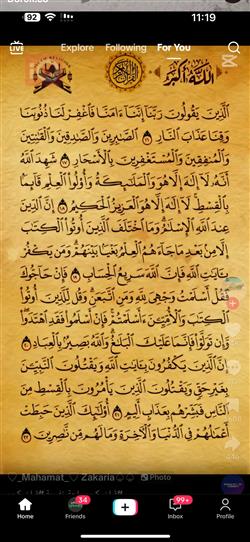 92
11:19
LIVE
Explore Following For You
الله أكبر
ٱلَّذِينَ يَقُولُونَ رَبَّنَآ إِنَّنَآ ءَامَنَّا فَٱغْفِرْ لَنَا ذُنُوبَنَا
وَقِنَا عَذَابَ ٱلنَّارِ ١٦ ٱلصَّٰبِرِينَ وَٱلصَّٰدِقِينَ وَٱلْقَٰنِتِينَ
وَٱلْمُنفِقِينَ وَٱلْمُسْتَغْفِرِينَ بِٱلْأَسْحَارِ ١٧ شَهِدَ ٱللَّهُ
أَنَّهُۥ لَآ إِلَٰهَ إِلَّا هُوَ وَٱلْمَلَٰٓئِكَةُ وَأُو۟لُوا۟ ٱلْعِلْمِ قَآئِمًۢا
بِٱلْقِسْطِ لَآ إِلَٰهَ إِلَّا هُوَ ٱلْعَزِيزُ ٱلْحَكِيمُ ١٨ إِنَّ ٱلدِّينَ
عِندَ ٱللَّهِ ٱلْإِسْلَٰمُ وَمَا ٱخْتَلَفَ ٱلَّذِينَ أُوتُوا۟ ٱلْكِتَٰبَ
إِلَّا مِنۢ بَعْدِ مَا جَآءَهُمُ ٱلْعِلْمُ بَغْيًۢا بَيْنَهُمْ وَمَن يَكْفُرْ
بِـَٔايَٰتِ ٱللَّهِ فَإِنَّ ٱللَّهَ سَرِيعُ ٱلْحِسَابِ ١٩ فَإِنْ حَآجُّوكَ
فَقُلْ أَسْلَمْتُ وَجْهِىَ لِلَّهِ وَمَنِ ٱتَّبَعَنِ وَقُل لِّلَّذِينَ أُوتُوا۟
ٱلْكِتَٰبَ وَٱلْأُمِّيِّـۧنَ ءَأَسْلَمْتُمْ فَإِنْ أَسْلَمُوا۟ فَقَدِ ٱهْتَدَوا۟
وَّإِن تَوَلَّوْا۟ فَإِنَّمَا عَلَيْكَ ٱلْبَلَٰغُ وَٱللَّهُ بَصِيرٌۢ بِٱلْعِبَادِ ٢٠
إِنَّ ٱلَّذِينَ يَكْفُرُونَ بِـَٔايَٰتِ ٱللَّهِ وَيَقْتُلُونَ ٱلنَّبِيِّـۧنَ
بِغَيْرِ حَقٍّ وَيَقْتُلُونَ ٱلَّذِينَ يَأْمُرُونَ بِٱلْقِسْطِ مِنَ
ٱلنَّاسِ فَبَشِّرْهُم بِعَذَابٍ أَلِيمٍ ٢١ أُو۟لَٰٓئِكَ ٱلَّذِينَ حَبِطَتْ
أَعْمَٰلُهُمْ فِى ٱلدُّنْيَا وَٱلْءَاخِرَةِ وَمَا لَهُم مِّن نَّٰصِرِينَ ٢٢
_Mahamat_ Zakaria Photo
34
99+
Home Friends Inbox Profile